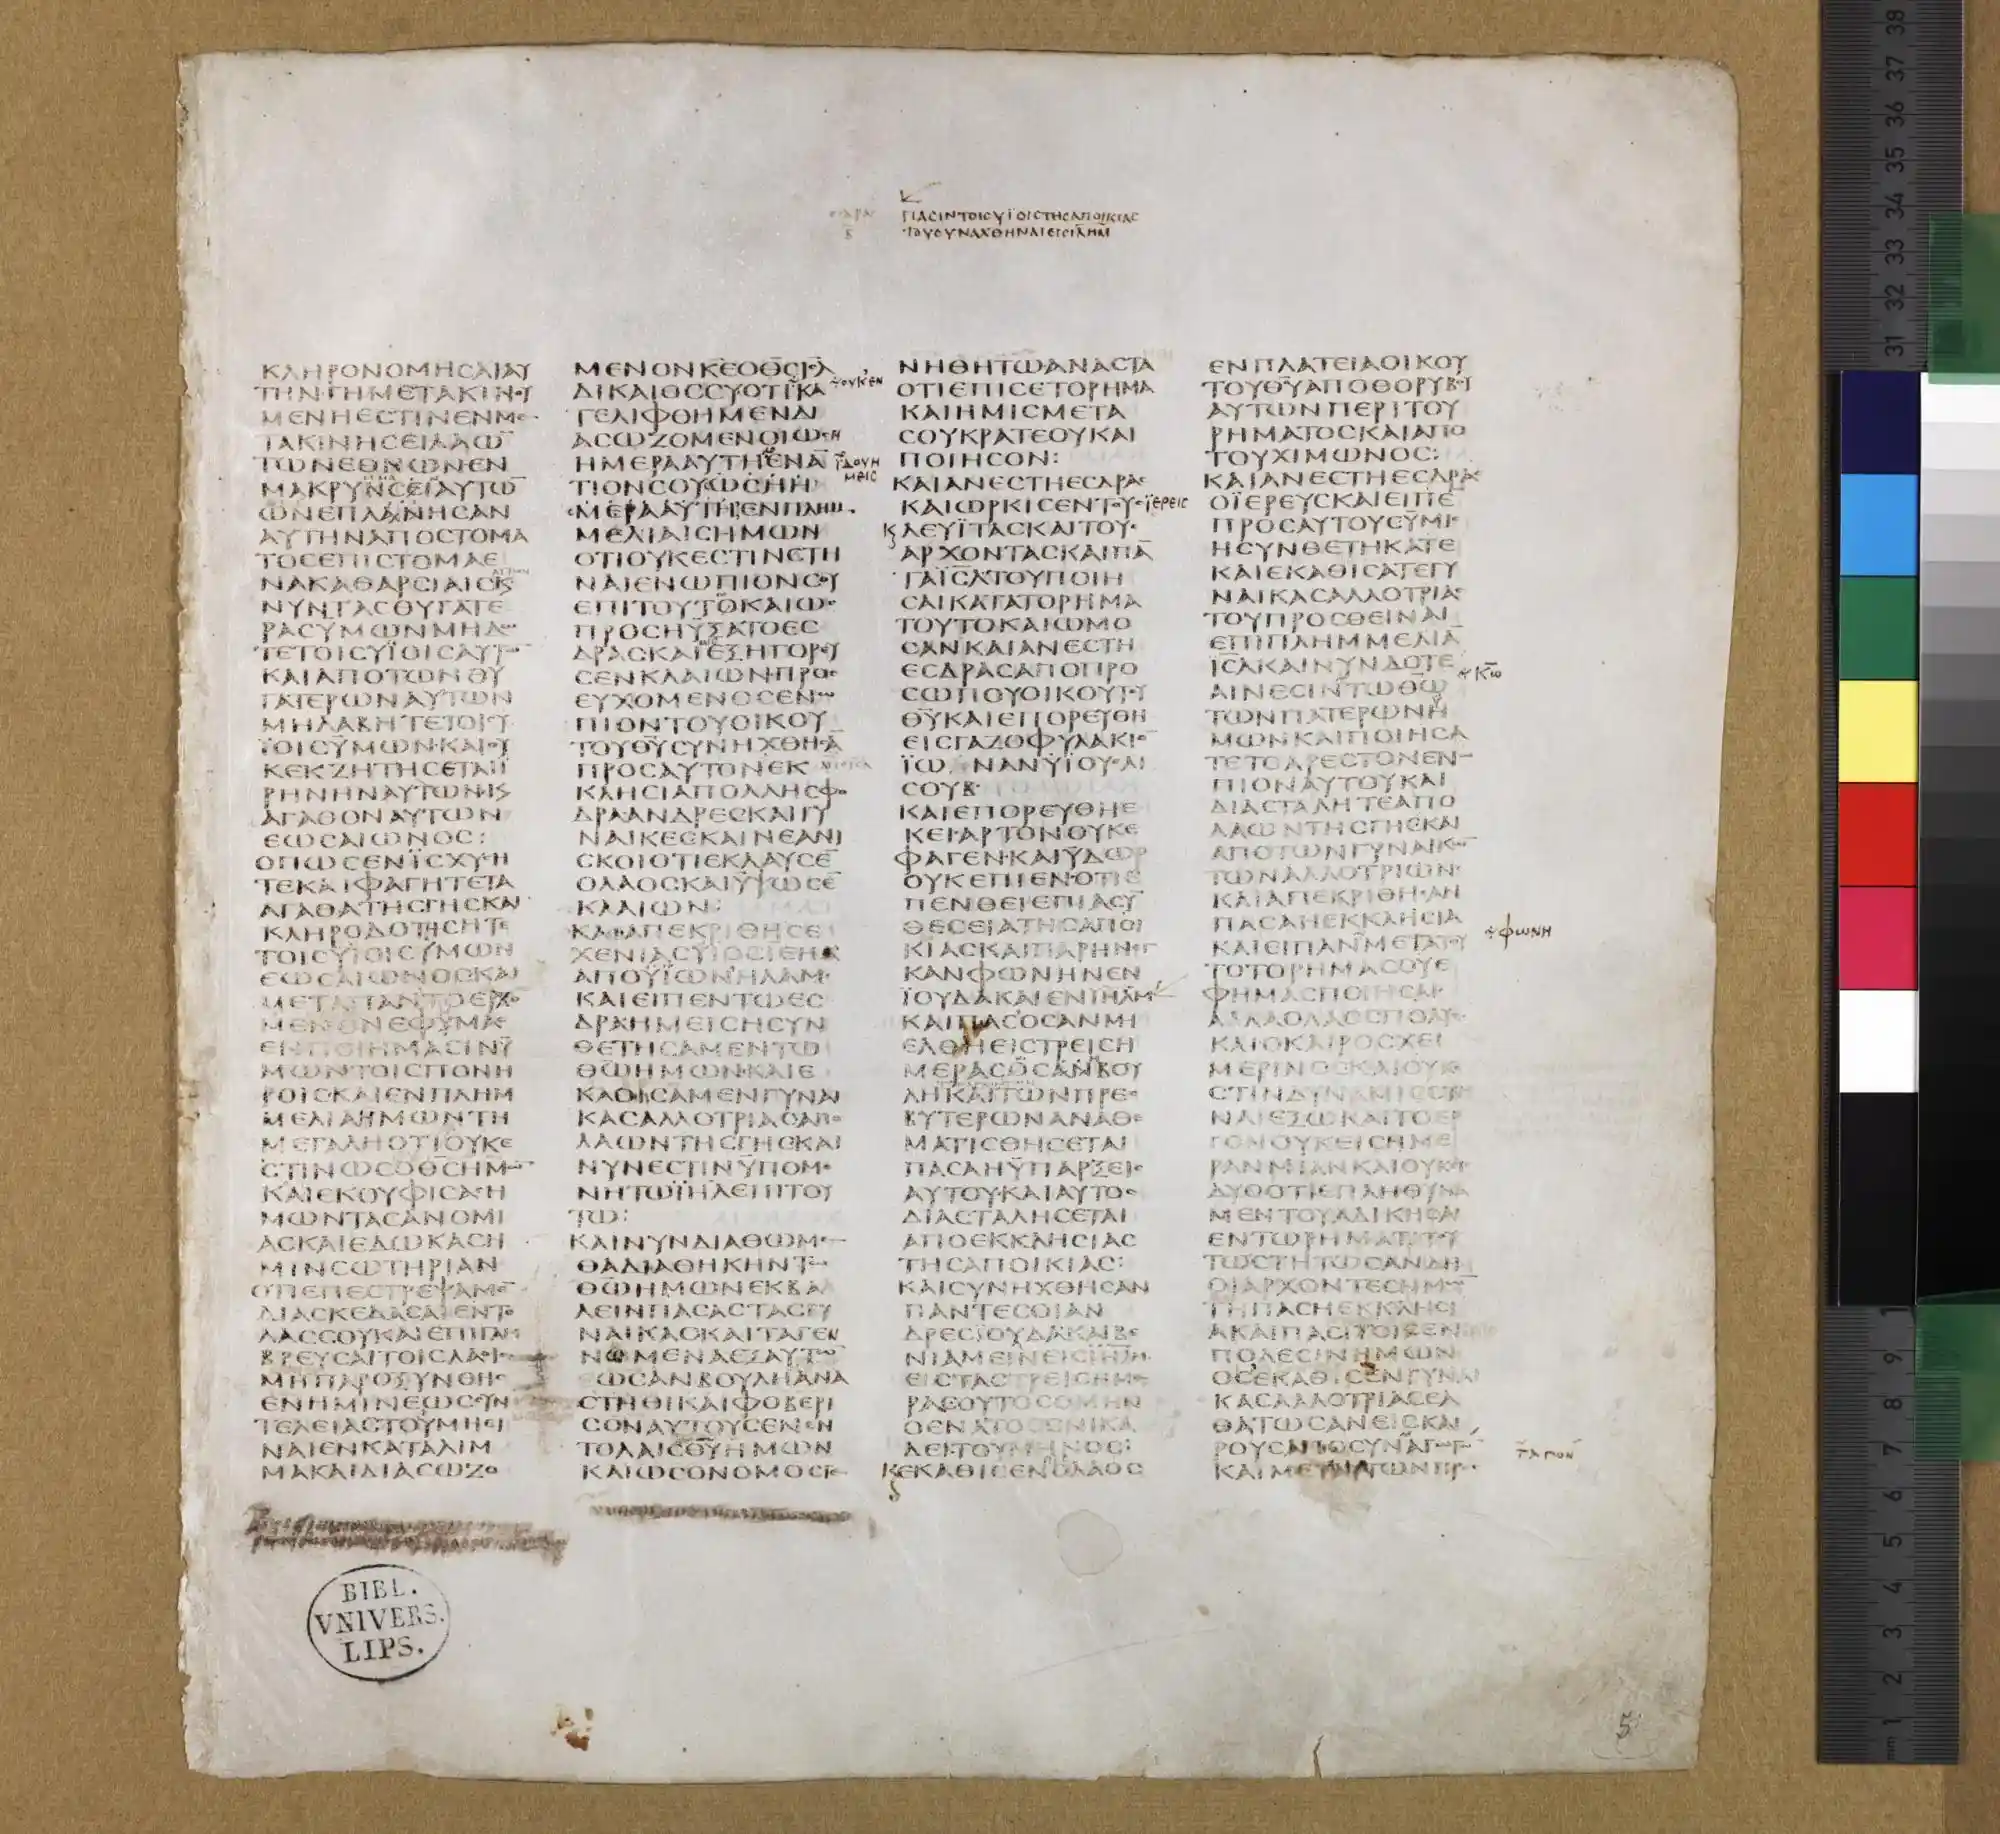 ΠΑСΙΝΤΟΙСΥΪΟΙСΤΗСΑΠΟΙΚΙΑС
ΤΟΥСΥΝΑΧΘΗΝΑΙΕΙСΙΛΗΜ
ΚΛΗΡΟΝΟΜΗСΑΙΑΥ
ΤΗΝΓΗΜΕΤΑΚΙΝΟΥ
ΜΕΝΗΕСΤΙΝΕΝΜΕ
ΤΑΚΙΝΗСΕΙΛΑΩ̅
ΤΩΝΕΘΝΩΝΕΝ
ΜΑΚΡΥΝСΕΙΑΥΤΩ̅
ΩΝΕΠΛΗΝΗСΑΝ
ΑΥΤΗΝΑΠΟСΤΟΜΑ
ΤΟСΕΠΙСΤΟΜΑΕ
ΝΑΚΑΘΑΡСΙΑΙСΚ
ΝΥΝΤΑСΘΥΓΑΤΕ
ΡΑСΥΜΩΝΜΗΔΩ
ΤΕΤΟΙСΥΪΟΙСΑΥΤ
ΚΑΙΑΠΟΤΩΝΘΥ
ΓΑΤΕΡΩΝΑΥΤΩΝ
ΜΗΛΑΒΗΤΕΤΟΙСΥ
ΪΟΙСΥΜΩΝΚΑΙΟΥ
ΚΕΚΖΗΤΗСΕΤΑΙΪ
ΡΗΝΗΝΑΥΤΩΝΚ
ΑΓΑΘΟΝΑΥΤΩΝ
ΕΩСΑΙΩΝΟС:
ΟΠΩСΕΝΪСΧΥСΗ
ΤΕΚΑΙΦΑΓΗΤΕΤΑ
ΑΓΑΘΑΤΗСΓΗСΚΑΙ
ΚΛΗΡΟΔΟΤΗСΗΤΕ
ΤΟΙСΥΪΟΙСΥΜΩΝ
ΕΩСΑΙΩΝΟСΚΑΙ
ΜΕΤΑΠΑΝΤΟΕΡΧΟ
ΜΕΝΟΝΕΦΥΜΑС
ΕΝΠΟΙΗΜΑСΙΝΥ
ΜΩΝΤΟΙСΠΟΝΗ
ΡΟΙСΚΑΙΕΝΠΛΗΜ
ΜΕΛΙΑΗΜΩΝΤΗ
ΜΕΓΑΛΗΟΤΙΟΥΚΕ
СΤΙΝΩСΟΘ̅С̅ΗΜΩ̅
ΚΑΙΕΚΟΥΦΙСΑСΗ
ΜΩΝΤΑСΑΝΟΜΙ
ΑСΚΑΙΕΔΩΚΑСΗ
ΜΙΝСΩΤΗΡΙΑΝ
ΟΤΙΕΠΕСΤΡΕΨΑΜΕ̅
ΔΙΑСΚΕΔΑСΑΙΕΝΤΟ
ΛΑССΟΥΚΑΙΕΠΙΓΑΜ
ΒΡΕΥСΑΙΤΟΙСΛΑΟΙС
ΜΗΠΑΡΟΞΥΝΘΗС
ΕΝΗΜΙΝΕΩССΥΝ
ΤΕΛΕΙΑСΤΟΥΜΗΕΙ
ΝΑΙΕΝΚΑΤΑΛΙΜ
ΜΑΚΑΙΔΙΑСΩΖΟ
ΜΕΝΟΝΚ̅Ε̅ΟΘ̅С̅Ι̅Η̅Λ̅
ΔΙΚΑΙΟССΥΟΤΙΚΑ
ΓΕΛΙΦΘΗΜΕΝΔΙ
ΑСΩΖΟΜΕΝΟΙΩСΗ
ΗΜΕΡΑΑΥΤΗΕΝΑ̅
ΤΙΟΝСΟΥΩСΗΗ
ΜΕΡΑΑΥΤΗΕΝΠΛΗΜ
ΜΕΛΙΑΙСΗΜΩΝ
ΟΤΙΟΥΚΕСΤΙΝСΤΗ
ΝΑΙΕΝΩΠΙΟΝСΟΥ
ΕΠΙΤΟΥΤΟΚΑΙΩС
ΠΡΟСΗΥΞΑΤΟΕС
ΔΡΑСΚΑΙΕΞΗΓΟΡΕΥ
СΕΝΚΛΑΙΩΝΠΡΟС
ΕΥΧΟΜΕΝΟСΕΝΩ
ΠΙΟΝΤΟΥΟΙΚΟΥ
ΤΟΥΘ̅Υ̅СΥΝΗΧΘΗСΑ̅
ΠΡΟСΑΥΤΟΝΕΚ
ΚΛΗСΙΑΠΟΛΛΗСΦΟ
ΔΡΑΑΝΔΡΕСΚΑΙΓΥ
ΝΑΙΚΕСΚΑΙΝΕΑΝΙ
СΚΟΙΟΤΙΕΚΛΑΥСΕ̅
ΟΛΑΟСΚΑΙΥΨΩСΕ̅
ΚΛΑΙΩΝ:
ΚΑΙΑΠΕΚΡΙΘΗСΕ
ΧΕΝΙΑСΥΙΟСΙΕΗΛ
ΑΠΟΥΪΩΝΗΛΑΜ
ΚΑΙΕΙΠΕΝΤΩΕС
ΔΡΑΗΜΕΙСΗСΥΝ
ΘΕΤΗСΑΜΕΝΤΩ
ΘΩ̅ΗΜΩΝΚΑΙΕ
ΚΑΘΙСΑΜΕΝΓΥΝΑΙ
ΚΑСΑΛΛΟΤΡΙΑСΑΠΟ
ΛΑΩΝΤΗСΓΗСΚΑΙ
ΝΥΝΕСΤΙΝΥΠΟΜΟ
ΝΗΤΩΙΗΛΕΠΙΤΟΥ
ΤΩ:
ΚΑΙΝΥΝΔΙΑΘΩΜΕ̅
ΘΑΔΙΑΘΗΚΗΝΤΩ
ΘΩ̅ΗΜΩΝΕΚΒΑ
ΛΕΙΝΠΑСΑСΤΑСΓΥ
ΝΑΙΚΑСΚΑΙΤΑΓΕΝ
ΝΩΜΕΝΑΕΞΑΥΤΩ̅
ΩСΑΝΒΟΥΛΗΑΝΑ
СΤΗΘΙΚΑΙΦΟΒΕΡΙ
СΟΝΑΥΤΟΥСΕΝΕΝ
ΤΟΛΑΙСΘ̅Υ̅ΗΜΩΝ
ΚΑΙΩСΟΝΟΜΟСΓΕ
ΝΗΘΗΤΩΑΝΑСΤΑ
ΟΤΙΕΠΙСΕΤΟΡΗΜΑ
ΚΑΙΗΜΙСΜΕΤΑ
СΟΥΚΡΑΤΕΟΥΚΑΙ
ΠΟΙΗСΟΝ:
ΚΑΙΑΝΕСΤΗΕСΔΡΑС
ΚΑΙΩΡΚΙСΕΝΤΟΥС
ΛΕΥΪΤΑСΚΑΙΤΟΥС
ΑΡΧΟΝΤΑСΚΑΙΠΑ̅
ΤΑΪС̅Λ̅ΤΟΥΠΟΙΗ
СΑΙΚΑΤΑΤΟΡΗΜΑ
ΤΟΥΤΟΚΑΙΩΜΟ
СΑΝΚΑΙΑΝΕСΤΗ
ΕСΔΡΑСΑΠΟΠΡΟ
СΩΠΟΥΟΙΚΟΥΤΟΥ
Θ̅Υ̅ΚΑΙΕΠΟΡΕΥΘΗ
ΕΙСΓΑΖΟΦΥΛΑΚΙΟ̅
ΪΩΝΑΝΥΪΟΥΛΙ
СΟΥΒ
ΚΑΙΕΠΟΡΕΥΘΗΕ
ΚΕΙΑΡΤΟΝΟΥΚΕ
ΦΑΓΕΝΚΑΙΥΔΩΡ
ΟΥΚΕΠΙΕΝΟΤΙΕ
ΠΕΝΘΕΙΕΠΙΑСΥ̅
ΘΕСΕΙΑΤΗСΑΠΟΙ
ΚΙΑСΚΑΙΠΑΡΗΝΕΓ
ΚΑΝΦΩΝΗΝΕΝ
ΪΟΥΔΑΚΑΙΕΝΪΗΛΜ
ΚΑΙΠΑСΟСΑΝΜΗ
ΕΛΘΗΕΙСΤΡΕΙСΗ
ΜΕΡΑСΟСΑΝΒΟΥ
ΛΗΚΑΙΤΩΝΠΡΕС
ΒΥΤΕΡΩΝΑΝΑΘΕ
ΜΑΤΙСΘΗСΕΤΑΙ
ΠΑСΑΗΥΠΑΡΞΕΙС
ΑΥΤΟΥΚΑΙΑΥΤΟС
ΔΙΑСΤΑΛΗСΕΤΑΙ
ΑΠΟΕΚΚΛΗСΙΑС
ΤΗСΑΠΟΙΚΙΑС:
ΚΑΙСΥΝΗΧΘΗСΑΝ
ΠΑΝΤΕСΟΙΑΝ
ΔΡΕСΪΟΥΔΑΚΑΙΒΕ
ΝΙΑΜΕΙΝΕΙСΪΗΛΜ
ΕΙСΤΑСΤΡΕΙСΗΜΕ
ΡΑСΟΥΤΟСΟΜΗΝ
ΟΕΝΑΤΟСΕΝΙΚΑ
ΔΕΙΤΟΥΜΗΝΟС:
ΕΚΑΘΙСΕΝΟΛΑΟС
ΕΝΠΛΑΤΕΙΑΟΙΚΟΥ
ΤΟΥΘ̅Υ̅ΑΠΟΘΟΡΥΒΟΥ
ΑΥΤΩΝΠΕΡΙΤΟΥ
ΡΗΜΑΤΟСΚΑΙΑΠΟ
ΤΟΥΧΙΜΩΝΟС:
ΚΑΙΑΝΕСΤΗΕСΔΡΑС
ΟΪΕΡΕΥСΚΑΙΕΙΠΕ̅
ΠΡΟСΑΥΤΟΥСΥΜΙС
ΗСΥΝΘΕΤΗΚΑΤΕ
ΚΑΙΕΚΑΘΙСΑΤΕΓΥ
ΝΑΙΚΑСΑΛΛΟΤΡΙΑС
ΤΟΥΠΡΟСΘΕΙΝΑΙ
ΕΠΙΠΛΗΜΜΕΛΙΑ̅
ΪС̅Λ̅ΚΑΙΝΥΝΔΟΤΕ
ΑΙΝΕСΙΝΤΩΘΩ̅
ΤΩΝΠΑΤΕΡΩΝΗ
ΜΩΝΚΑΙΠΟΙΗСΑ
ΤΕΤΟΑΡΕСΤΟΝΕΝΩ
ΠΙΟΝΑΥΤΟΥΚΑΙ
ΔΙΑСΤΑΛΗΤΕΑΠΟ
ΛΑΩΝΤΗСΓΗСΚΑΙ
ΑΠΟΤΩΝΓΥΝΑΙΚΩ̅
ΤΩΝΑΛΛΟΤΡΙΩΝ
ΚΑΙΑΠΕΚΡΙΘΗСΑΝ
ΠΑСΑΗΕΚΚΛΗСΙΑ
ΚΑΙΕΙΠΑΝΜΕΓΑΤΟΥ
ΤΟΤΟΡΗΜΑСΟΥΕ
ΦΗΜΑСΠΟΙΗСΑΙ
ΑΛΛΑΟΛΑΟСΠΟΛΥС
ΚΑΙΟΚΑΙΡΟСΧΕΙ
ΜΕΡΙΝΟСΚΑΙΟΥΚΕ
СΤΙΝΔΥΝΑΜΙССΤΗ
ΝΑΙΕΞΩΚΑΙΤΟΕΡ
ΓΟΝΟΥΚΕΙСΗΜΕ
ΡΑΝΜΙΑΝΚΑΙΟΥΚΕΙС
ΔΥΟΟΤΙΕΠΛΗΘΥΝΑ
ΜΕΝΤΟΥΑΔΙΚΗСΑΙ
ΕΝΤΩΡΗΜΑΤΙΤΟΥ
ΤΩСΤΗΤΩСΑΝΔΗ
ΟΙΑΡΧΟΝΤΕСΗΜΩ̅
ΤΗΠΑСΗΕΚΚΛΗСΙ
ΑΚΑΙΠΑСΙΤΟΙСΕΝ
ΠΟΛΕСΙΝΗΜΩΝ
ΟСΕΚΑΘΙСΕΝΓΥΝΑΙ
ΚΑСΑΛΛΟΤΡΙΑСΕΛ
ΘΑΤΩСΑΝΕΙСΚΑΙ
ΡΟΥСΑΠΟСΥΝΑΓΩΓΩ̅
ΚΑΙΜΕΤΑΥΤΩΝΠΡ
ΟΥΚΕΝ
ΔΟΥΗ
ΜΕΙС
ΪΕΡΕΙС
Κ̅Ω̅
ΦΩΝΗ
ΤΑΓΩΝ
BIBL.
VNIVERS.
LIPS.
5